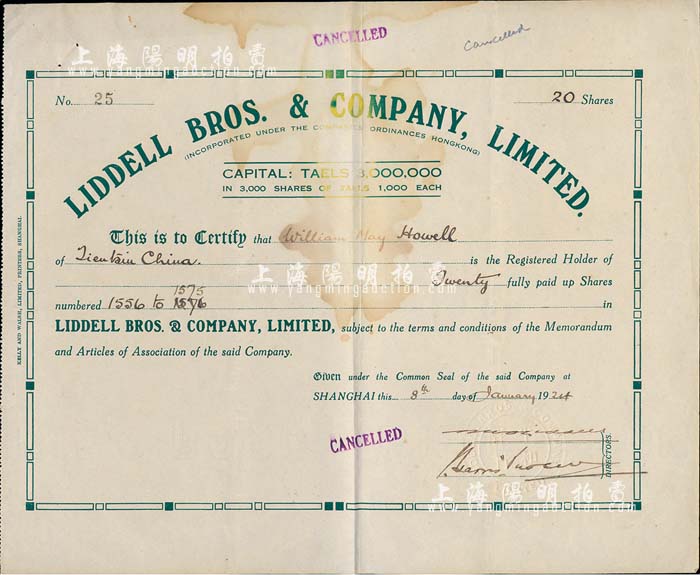 CANCELLED
Cancelled
上海陽明拍賣
www.yangmingauction.com
No. 25
20 Shares
LIDDELL BROS. & COMPANY, LIMITED.
(INCORPORATED UNDER THE COMPANIES ORDINANCES HONGKONG)
CAPITAL: TAELS 3,000,000
IN 3,000 SHARES OF TAELS 1,000 EACH
This is to Certify that William May Howell
of Tientsin China. is the Registered Holder of
上海陽明拍賣
www.yangmingauction.com
Twenty fully paid up Shares
1575
numbered 1556 to 1576 in
LIDDELL BROS. & COMPANY, LIMITED, subject to the terms and conditions of the Memorandum
and Articles of Association of the said Company.
Given under the Common Seal of the said Company at
SHANGHAI this 8th day of January 1924
CANCELLED
DIRECTORS.
上海陽明拍賣
www.yangmingauction.com
KELLY AND WALSH, LIMITED, PRINTERS, SHANGHAI.